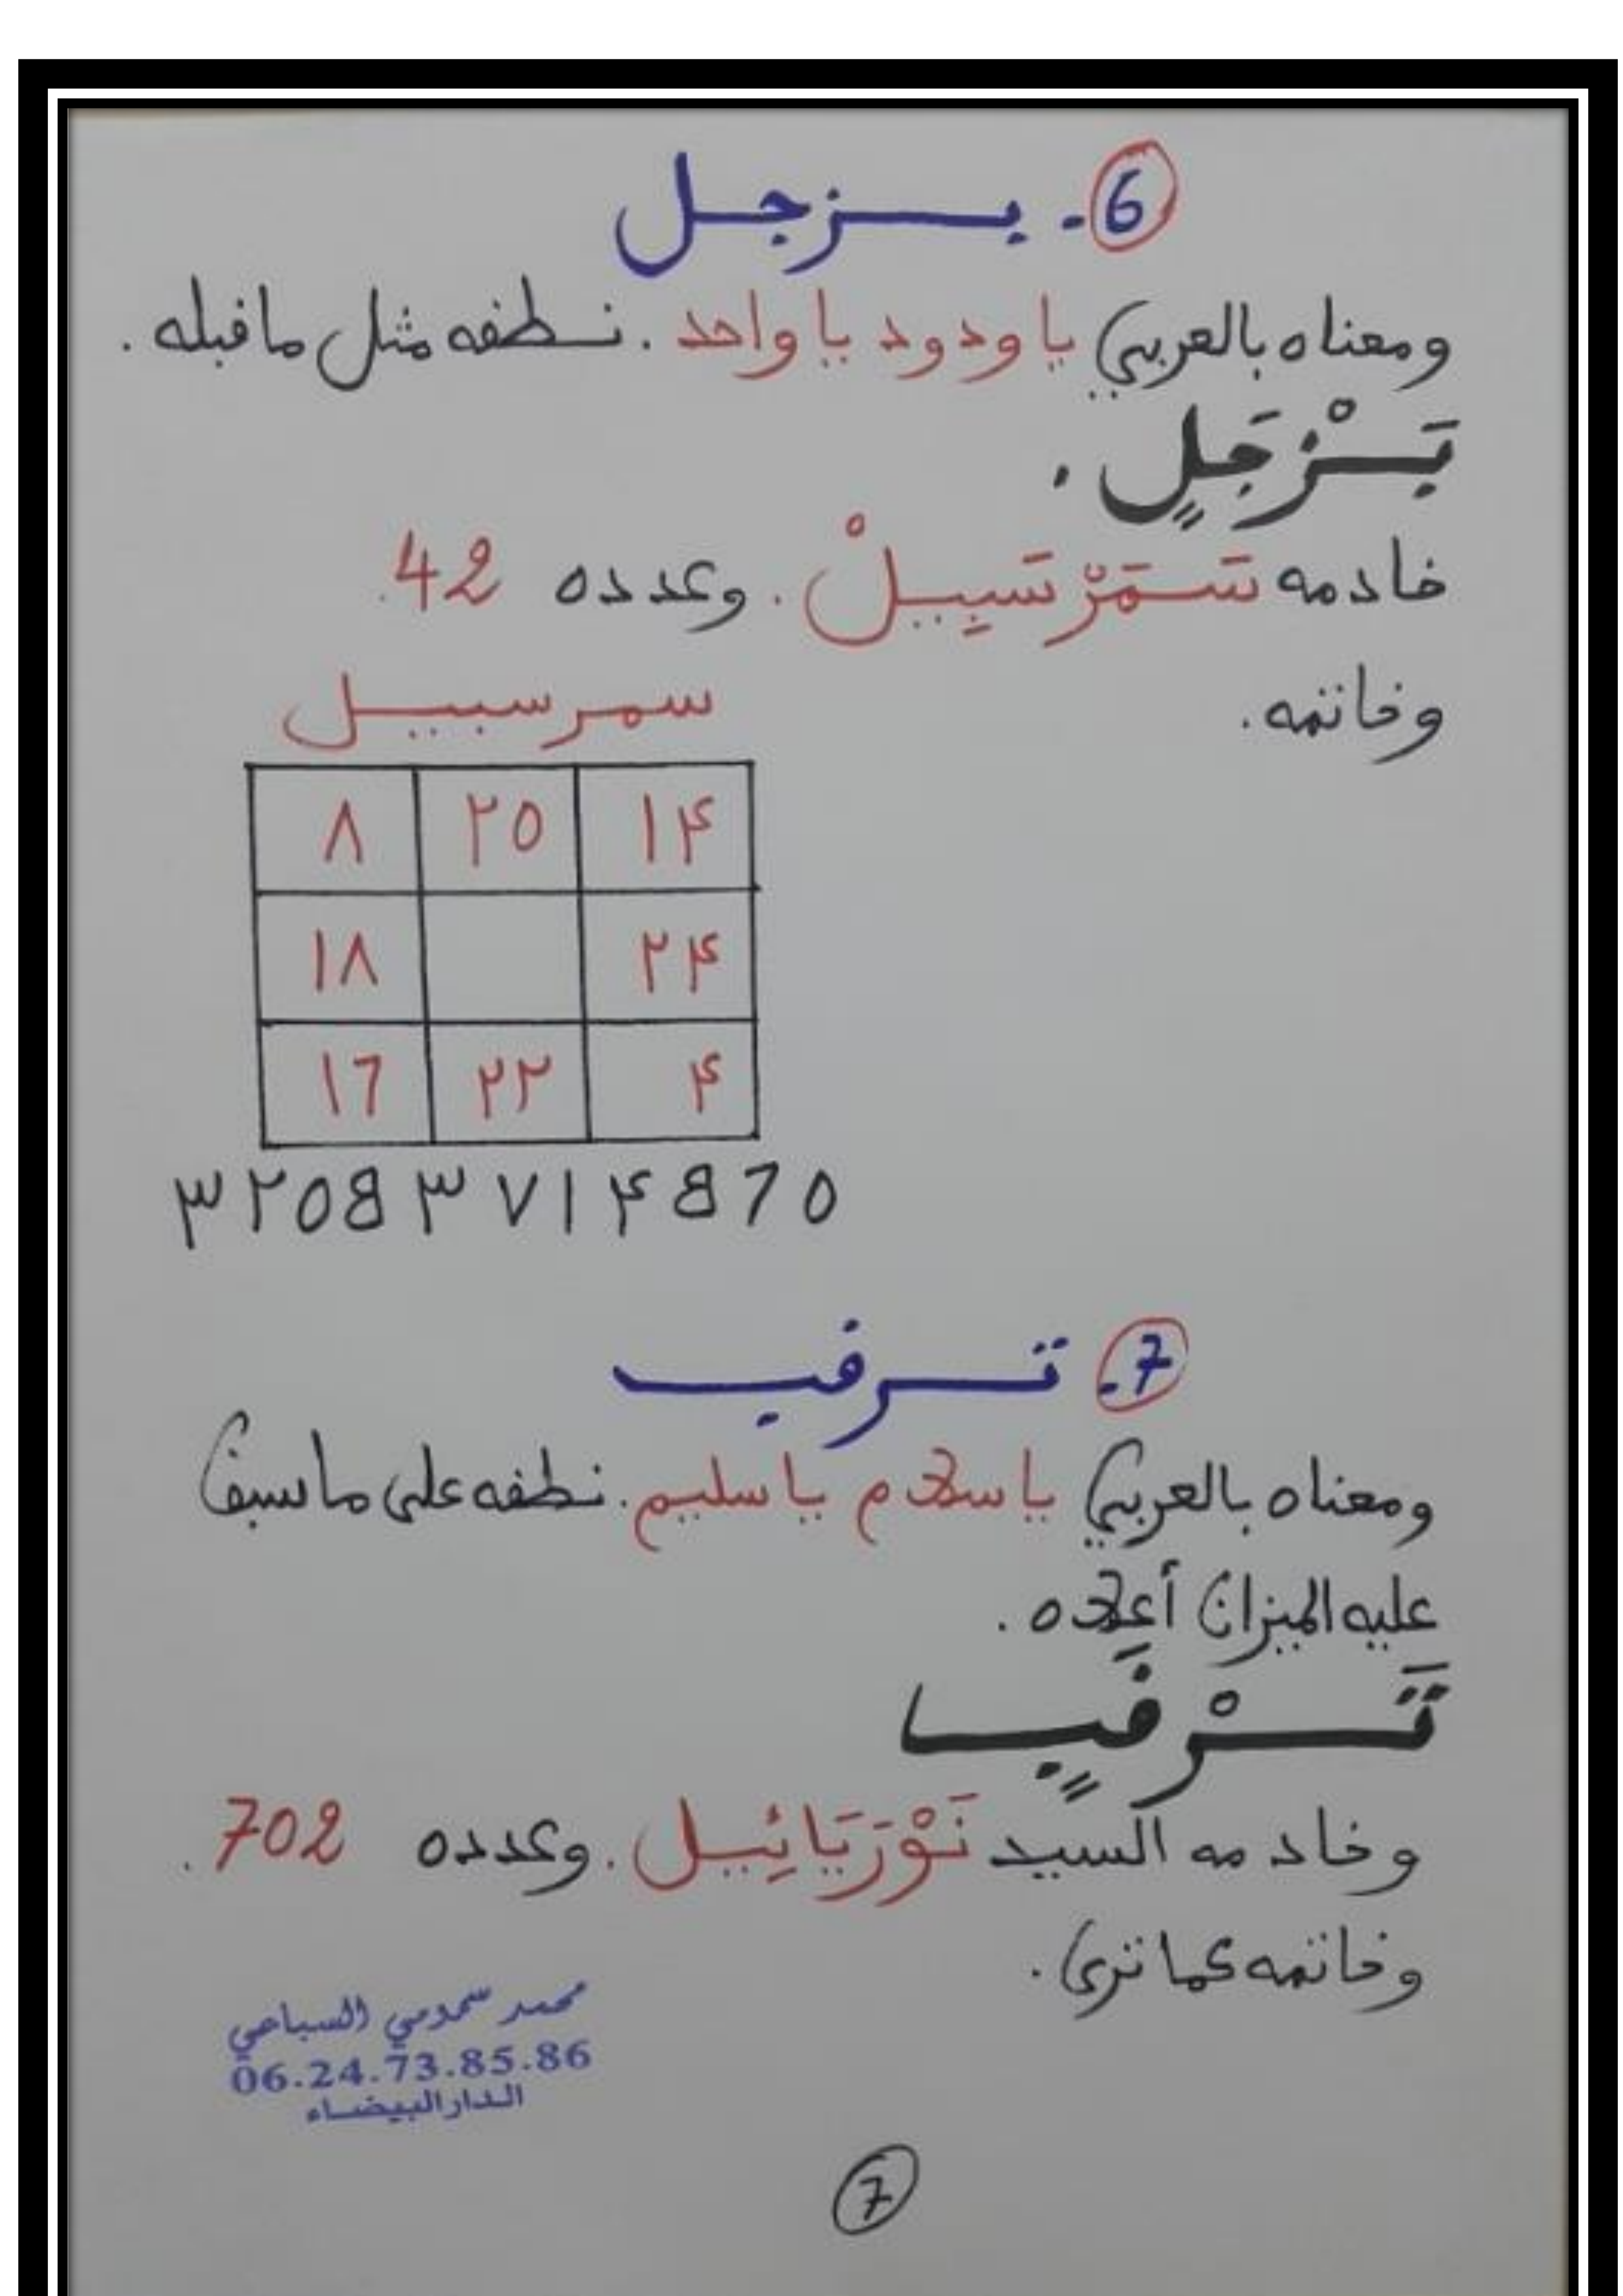 6- بزجل
ومعناه بالعربي يا ودود يا واحد . نطقه مثل ما قبله .
بَزْجَلٍ .
خادمه سَمَرْسَبِيلْ . وعدده 42.
وخاتمه .
سمرسبيل
٨ ٢٥ ١۴
١٨ ٢۴
١٦ ٢٢ ۴
٣٢٥8٣٧١۴8٦٥
7- ترقب
ومعناه بالعربي يا سلام يا سليم . نطقه على ما سبق
عليه الميزان أعلاه .
تَرْقَبٍ
وخادمه السيد نَوْرَيَائِيل . وعدده 702.
وخاتمه كما ترى .
محمد سمومي السباعي
06.24.73.85.86
الدار البيضاء
7